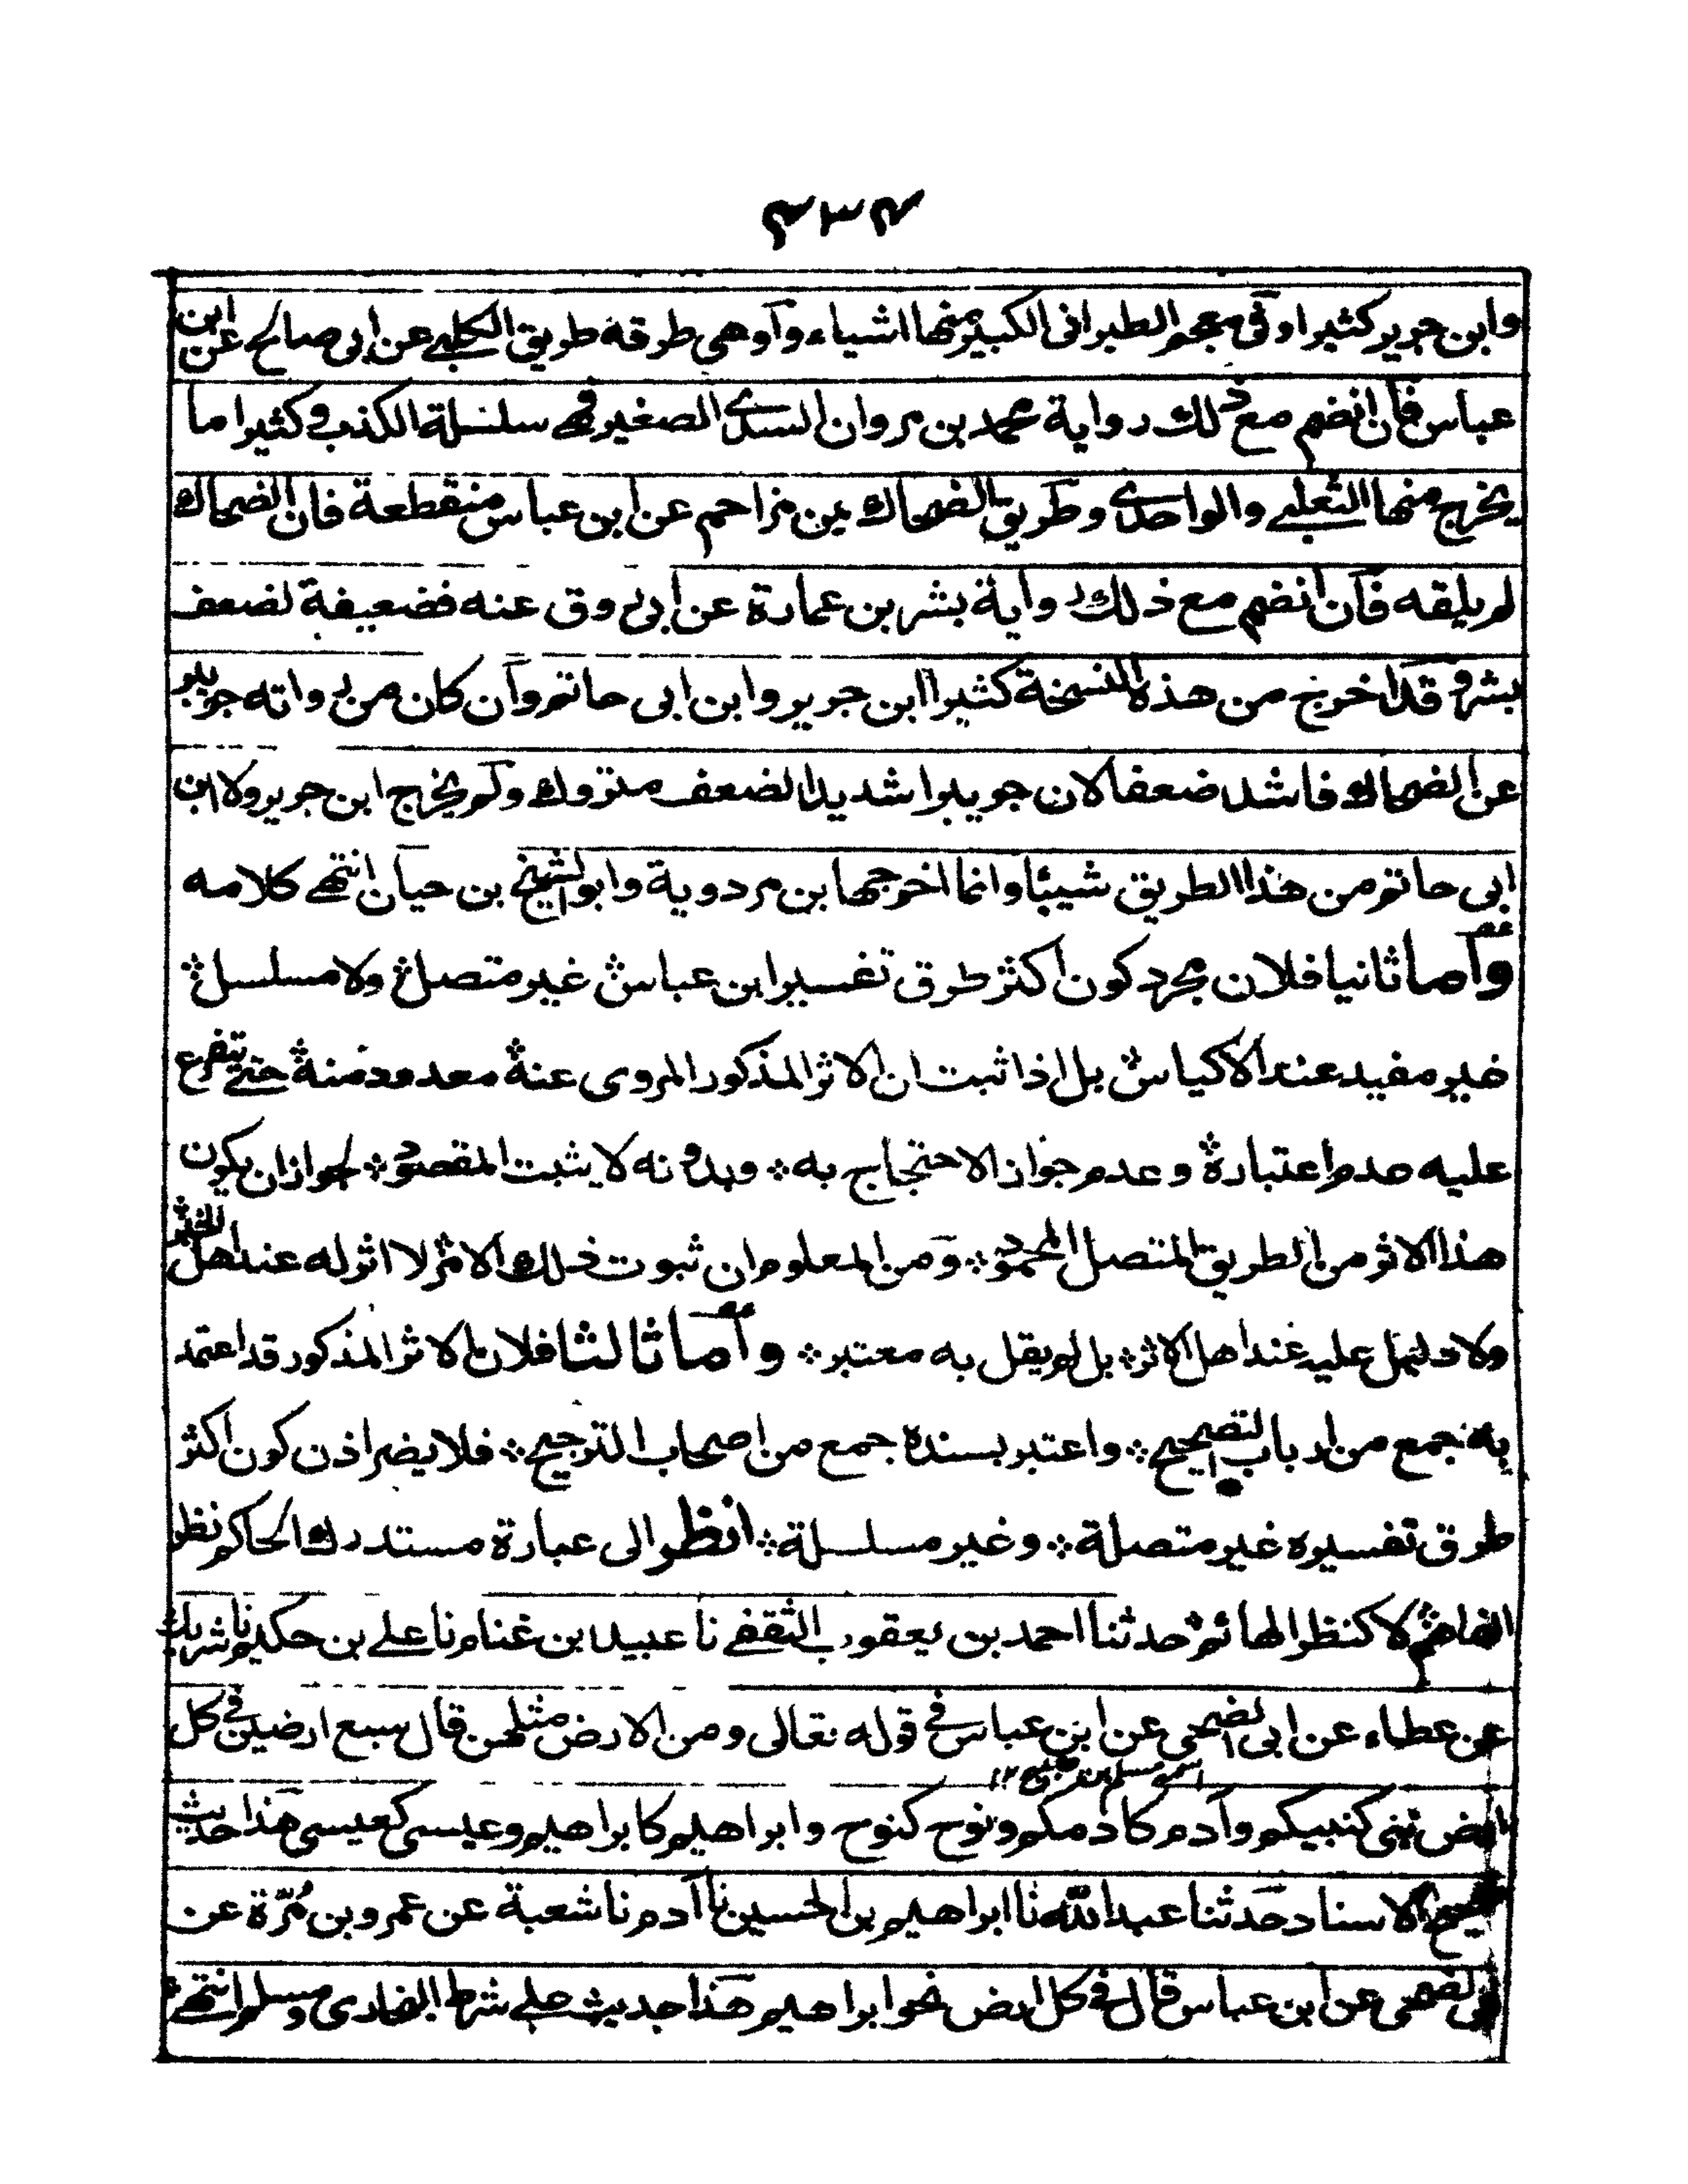 ۴۳۴
وابن جرير كثيرا وفى معجم الطبرانى الكبير منها اشياء وآوهى طرقه طريق الكلبے عن ابى صالح عن ابن
عباس فان انضم مع ذلك رواية محمد بن مروان السدے الصغير فهے سلسلة الكذب وكثيرا ما
يخرج منها الثعلبے والواحدے وطريق الضحاك بن مزاحم عن ابن عباس منقطعة فان الضحاك
لم يلقه فآن انضم مع ذلك رواية بشر بن عمارة عن ابى روق عنه فضعيفة لضعف
بشر وقد اخرج من هذه النسخة كثيرا ابن جرير وابن ابى حاتم وآن كان من رواته جويبر
عن الضحاك فاشد ضعفا لان جويبرا شديد الضعف متروك ولم يخرج ابن جرير ولا ابن
ابى حاتم من هذا الطريق شيئا وانما اخرجها ابن مردوية وابو الشيخ بن حيان انتهے كلامه
وآما ثانيا فلان مجرد كون اكثر طرق تفسير ابن عباس ؞ غير متصل ؞ ولا مسلسل ؞
غير مفيد عند الاكياس ؞ بل اذا ثبت ان الاثر المذكور المروى عنه ؞ معدود منه ؞ حتے يتفرع
عليه عدم اعتباره ؞ وعدم جواز الاحتجاج به ؞ وبدونه لا يثبت المقصود ؞ لجواز ان يكون
هذا الاثر من الطريق المتصل المحمود ؞ وَمن المعلوم ان ثبوت ذلك الامر ؞ لا اثر له عند اهل الخبر ؞
ولا دليل عليه عند اهل الاثر ؞ بل لم يقل به معتبر ؞ وآما ثالثا فلان الاثر المذكور قد اعتمد
به جمع من ارباب التصحيح ؞ واعتبر بسنده جمع من اصحاب الترجيح ؞ فلا يضر اذن كون اكثر
طرق تفسيره غير متصلة ؞ وغير مسلسلة ؞ انظر الى عبارة مستدرك الحاكم نظر
الفاهم ؞ لا كنظر الهائم ؞ حدثنا احمد بن يعقوب الثقفے نا عبيد بن غنام نا علے بن حكيم نا شريك
عن عطاء عن ابى الضحى عن ابن عباس فى قوله تعالى ومن الارض مثلهن قال سبع ارضين فى كل
اسمه مسلم بن صبيح ١٢
ارض نبى كنبيكم وآدم كآدمكم ونوح كنوح وابراهيم كابراهيم وعيسى كعيسى هذا حديث
صحيح الاسناد حَدثنا عبد الله نا ابراهيم بن الحسين نا آدم نا شعبة عن عمرو بن مُرّة عن
ابى الضحى عن ابن عباس قال فى كل ارض نحو ابراهيم هَذا حديث علے شرط البخارى ومسلم انتهے ؞